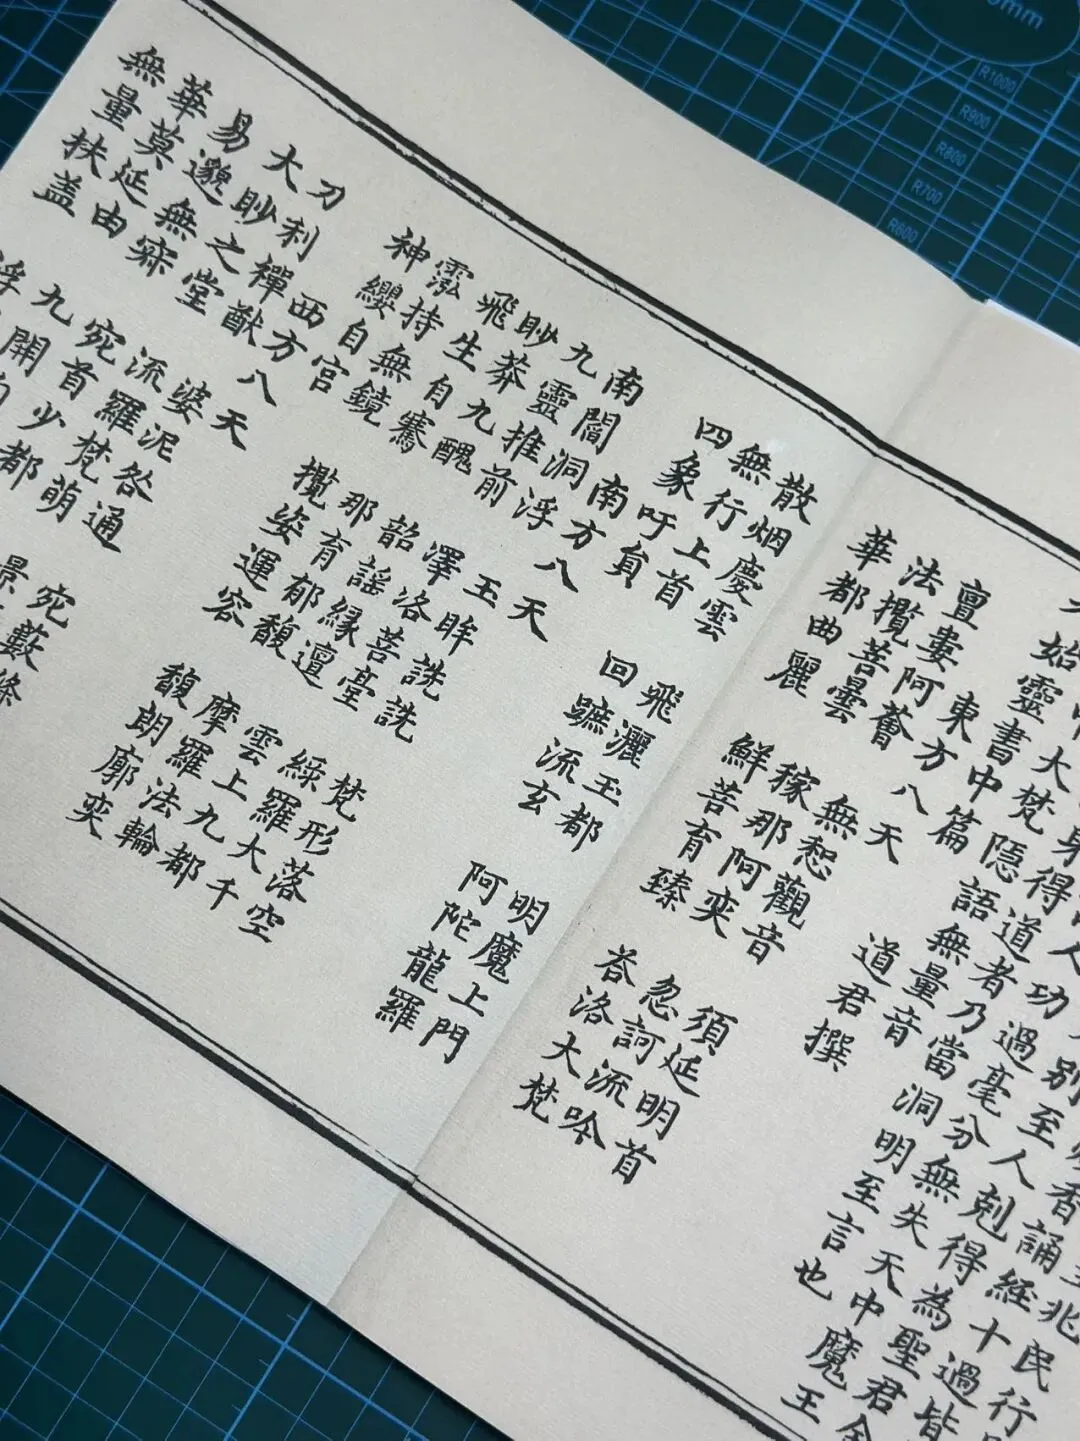 兆民行
香誦經十過皆
別至人剋得為聖君金
功過毫分無失天中魔王
身得道者乃當洞明至言也
大梵隱語無量音
始靈書中篇 道君撰
東方八天
亶婁阿薈 無恝觀音 須延明首
法攬菩曇 稼那阿奕 忽訶流吟
華都曲麗 鮮菩育臻 荅洛大梵
散烟慶雲 飛灑玉都 明魔上門
無行上首 回蹠流玄 阿陀龍羅
四象吁員
南方八天
南閻洞浮 玉眸詵詵 梵形落空
九靈推前 澤洛菩臺 綠羅大千
眇莽九醜 韶謠緣邅 雲上九都
飛生自騫 那育郁馥 摩羅法輪
霐持無鏡 攬姿運容 馥朗廓奕
神纓自宮
西方八天
刀利禪猷 婆泥咎通 宛藪
大眇之堂 流羅梵萌 景
易邈無寂 宛首少都
華莫延由 九開自
無量扶盖 浮